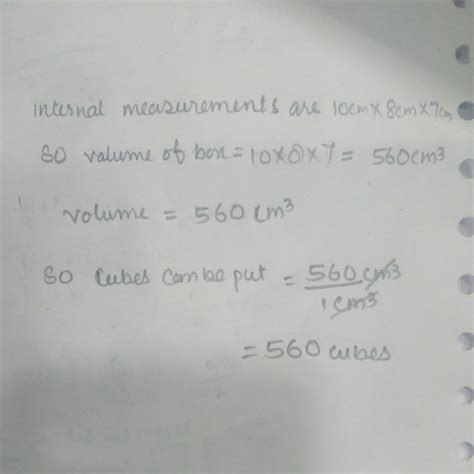 internal measurements are 10cm×8cm×7cm
so volume of box = 10×8×7 = 560cm³
volume = 560 cm³
so cubes can be put = 560 cm³
1 cm³
= 560 cubes